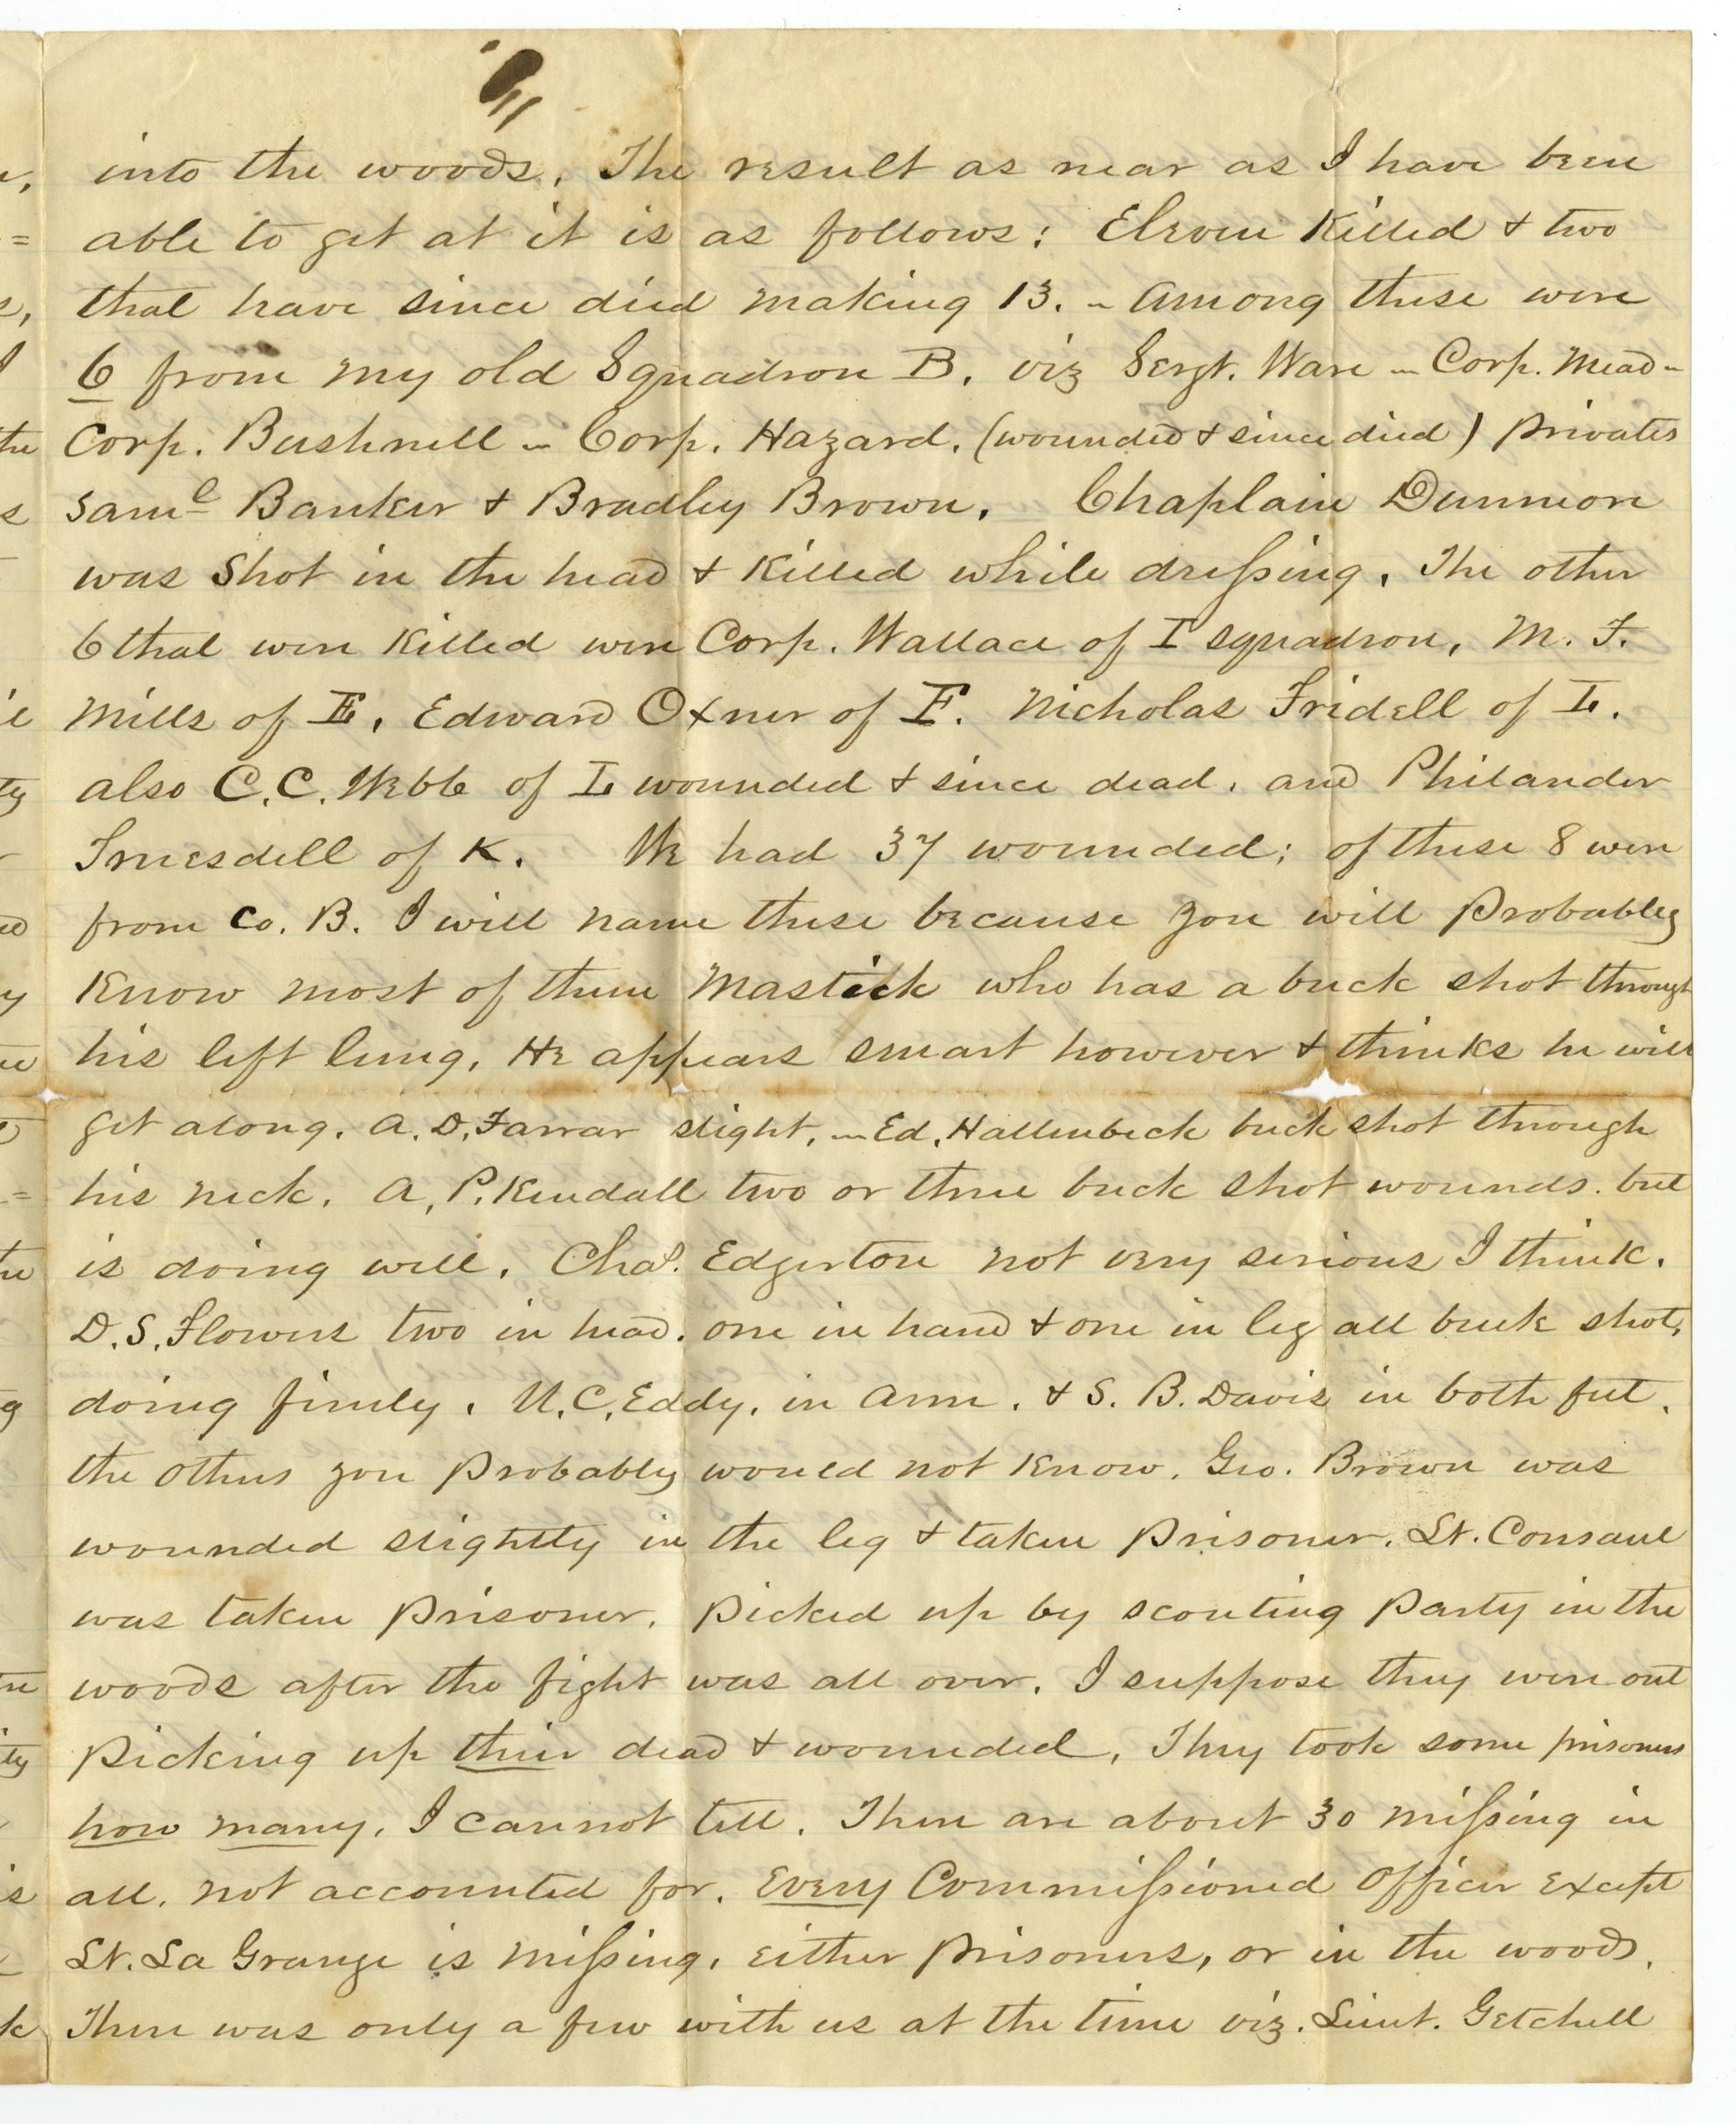 into the woods. The result as near as I have been
able to get at it is as follows: Eleven Killed & two
that have since died making 13. - Among these were
6 from my old Squadron B. viz Sergt. Ware - Corp. Mead -
Corp. Bushnell - Corp. Hazard. (wounded & since died) Privates
Saml Banker & Bradley Brown. Chaplain Dunmore
was Shot in the head & Killed while dressing. The other
6 that were Killed were Corp. Wallace of I Squadron, M. F.
Mills of E, Edward Oxner of F. Nicholas Fridell of L.
also C.C. Webb of L wounded & since dead. and Philander
Truesdell of K. We had 37 wounded; of these 8 were
from Co. B. I will name these because you will Probably
Know most of them Mastick who has a buck shot through
his left lung. He appears smart however & thinks he will
get along. A. D. Farrar slight, - Ed. Hallenbeck buck shot through
his neck. A. P. Kendall two or three buck shot wounds. but
is doing well. Chas. Edgerton not very serious I think.
D. S. Flowers two in head. one in hand & one in leg all buck shot,
doing finely. U. C. Eddy, in arm. & S. B. Davis in both feet.
the others you Probably would not Know. Geo. Brown was
wounded slightly in the leg & taken Prisoner. Lt. Consaul
was taken Prisoner. Picked up by scouting Party in the
woods after the fight was all over. I suppose they were out
Picking up their dead & wounded. They took some prisoners
how many, I cannot tell. There are about 30 missing in
all. not accounted for. Every Commissioned Officer Except
Lt. La Grange is missing. either Prisoners, or in the woods.
There was only a few with us at the time viz. Lieut. Getchell